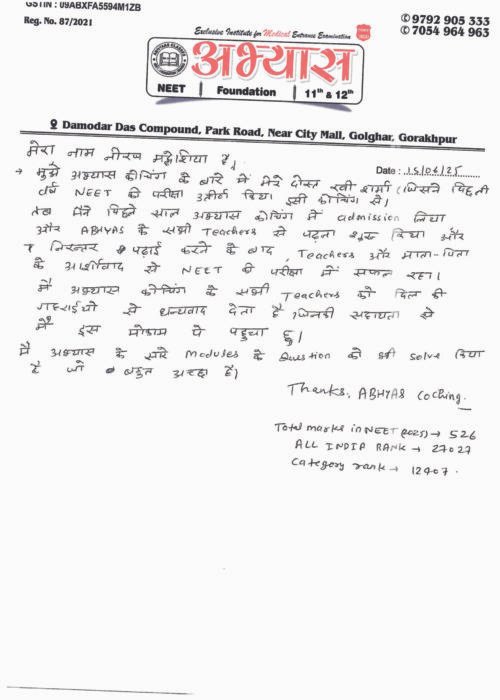 GSTIN : 09ABXFA5594M1ZB
Reg. No. 87/2021
Exclusive Institute for Medical Entrance Examination
✆ 9792 905 333
✆ 7054 964 963
अभ्यास
NEET | Foundation | 11th & 12th
Damodar Das Compound, Park Road, Near City Mall, Golghar, Gorakhpur
मेरा नाम नीरज महेशिया है,
Date : 15/06/25
→ मुझे अभ्यास कोचिंग के बारे में मेरे दोस्त रवी शर्मा (जिसने पिछली
वर्ष NEET की परीक्षा उत्तीर्ण किया इसी कोचिंग से।
तब मैंने पिछले साल अभ्यास कोचिंग में admission लिया
और ABHYAS के सभी Teachers से पढ़ना शुरू किया और
निरन्तर पढ़ाई करने के बाद, Teachers और माता-पिता
के आर्शीवाद से NEET की परीक्षा में सफल रहा।
मैं अभ्यास कोचिंग के सभी Teachers को दिल की
गहराईयो से धन्यवाद देता हूँ जिनकी सहायता से
मैं इस मोकाम पे पहुचा हु।
मैं अभ्यास के सारे Modules के Question को भी solve किया
है जो बहुत अच्छा है।
Thanks, ABHYAS Coching.
Total marks in NEET (2025) → 526
ALL INDIA RANK → 27027
Category rank → 12407.